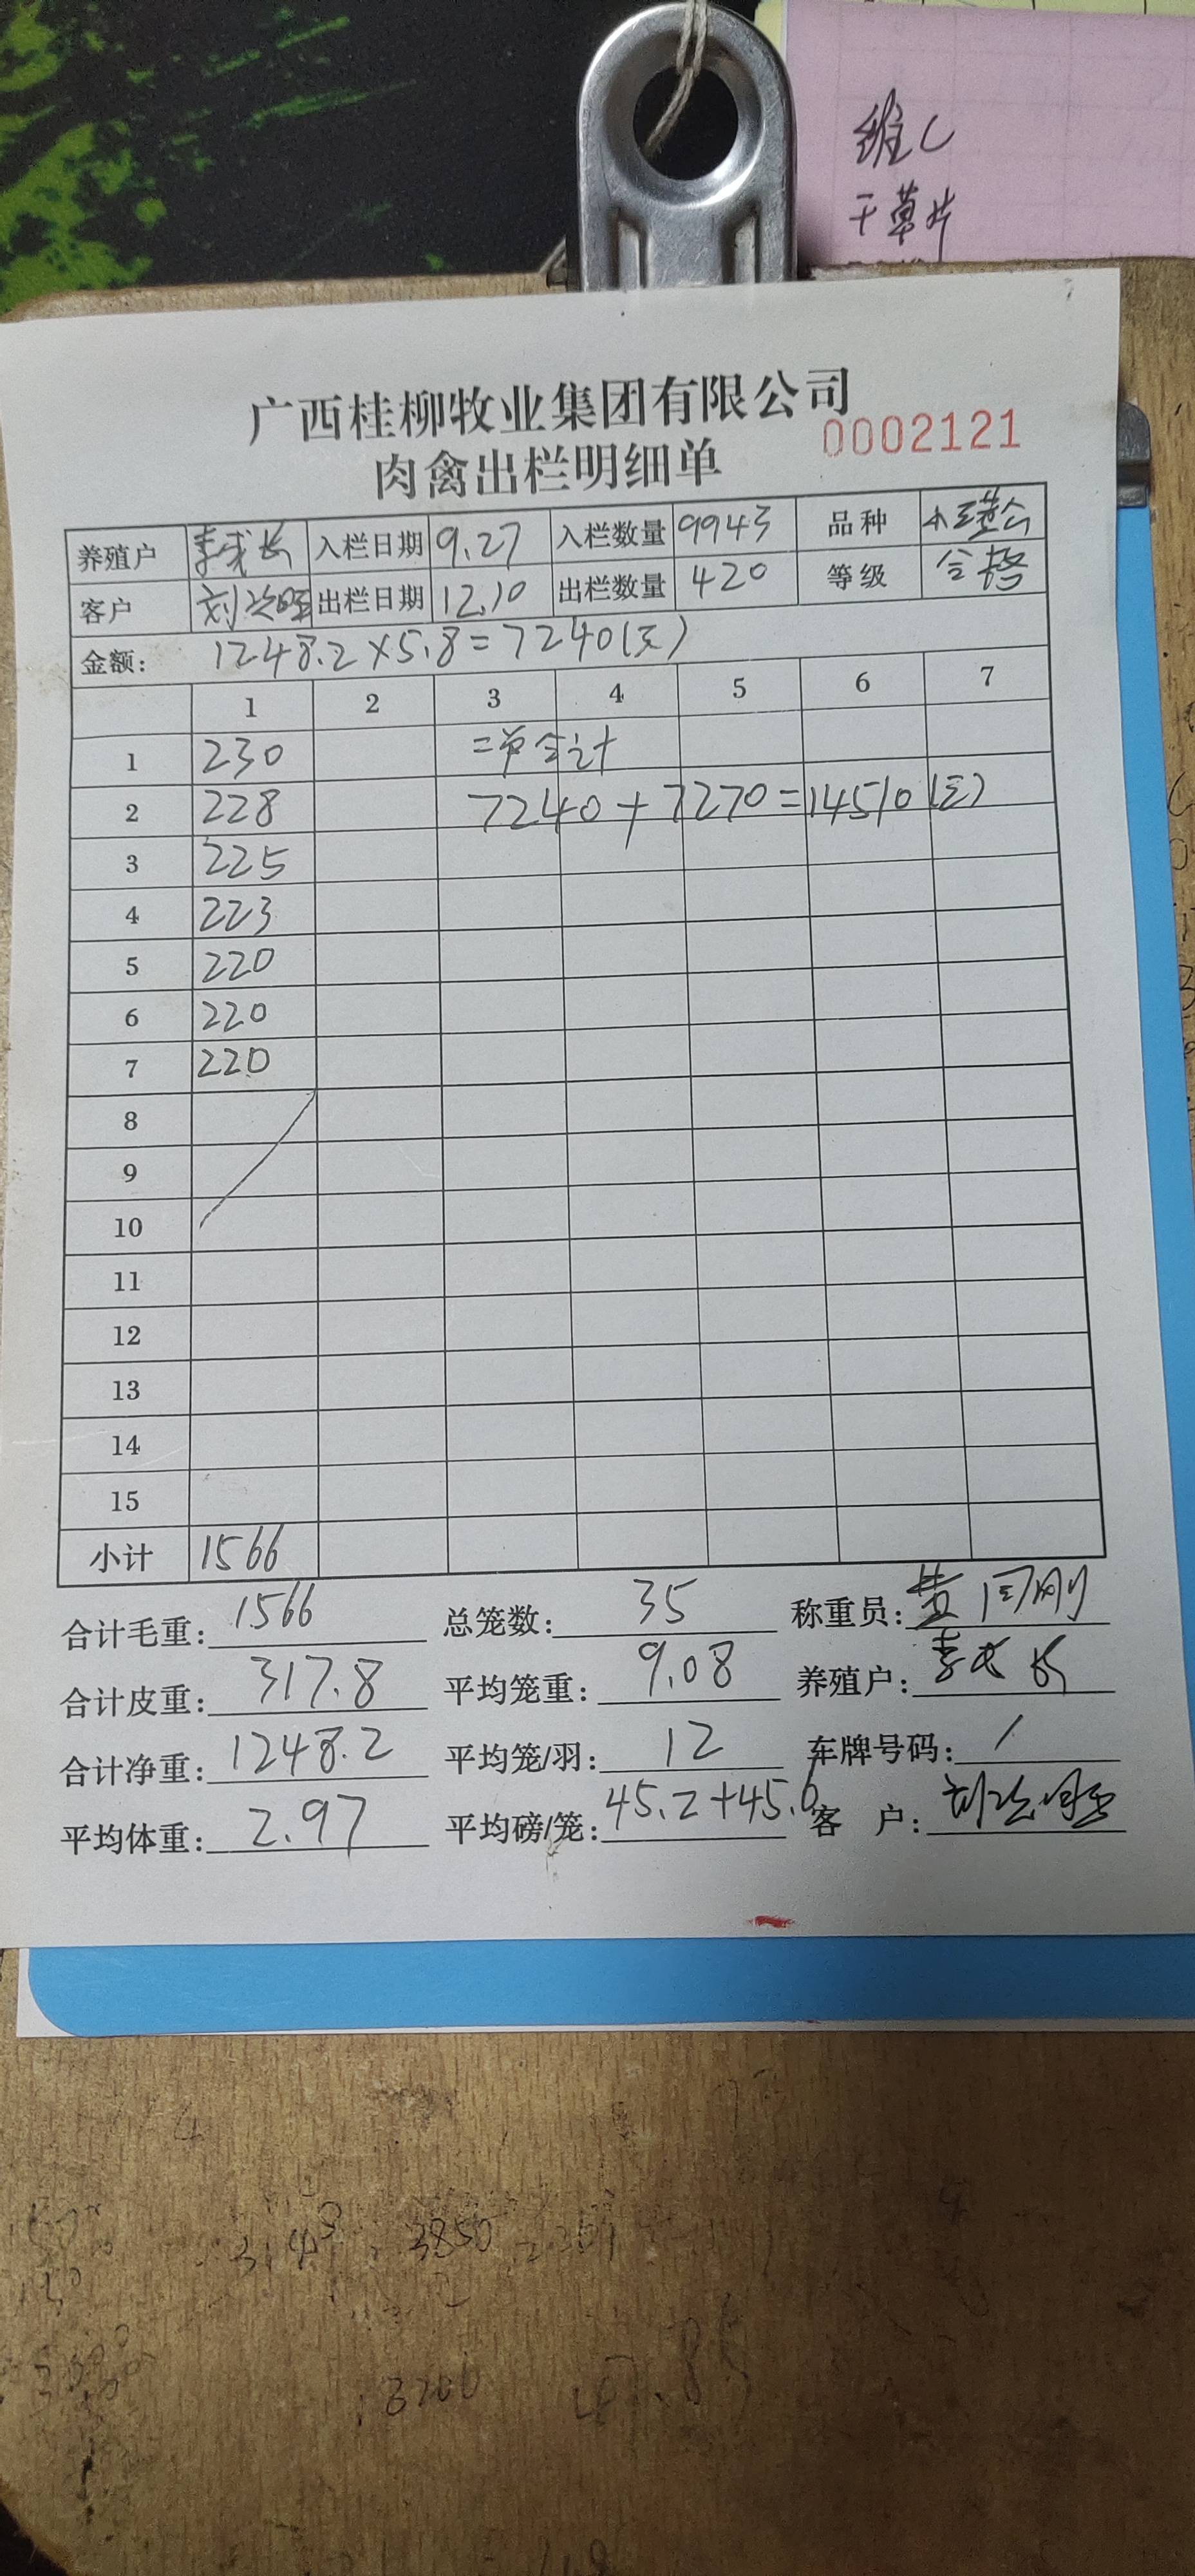 维C
干草片
广西桂柳牧业集团有限公司
肉禽出栏明细单 0002121
养殖户 李成长 入栏日期 9.27 入栏数量 9943 品种
客户 出栏日期 12.10 出栏数量 420 等级 合格
金额: 1248.2×5.8=7240(元)
1 2 3 4 5 6 7
1 230 二单合计
2 228 7240+7270=14510(元)
3 225
4 223
5 220
6 220
7 220
8
9
10
11
12
13
14
15
小计 1566
合计毛重: 1566 总笼数: 35 称重员:
合计皮重: 317.8 平均笼重: 9.08 养殖户: 李成长
合计净重: 1248.2 平均笼/羽: 12 车牌号码: /
平均体重: 2.97 平均磅/笼: 45.2+45.6 客 户:
3200